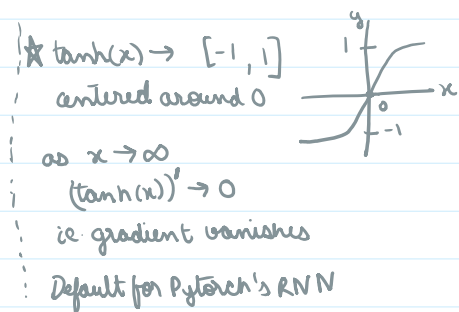 ☆ tanh(x) → [-1, 1]
centered around 0
as x → ∞
(tanh(x))' → 0
ie. gradient vanishes
Default for Pytorch's RNN
y
1
x
0
-1